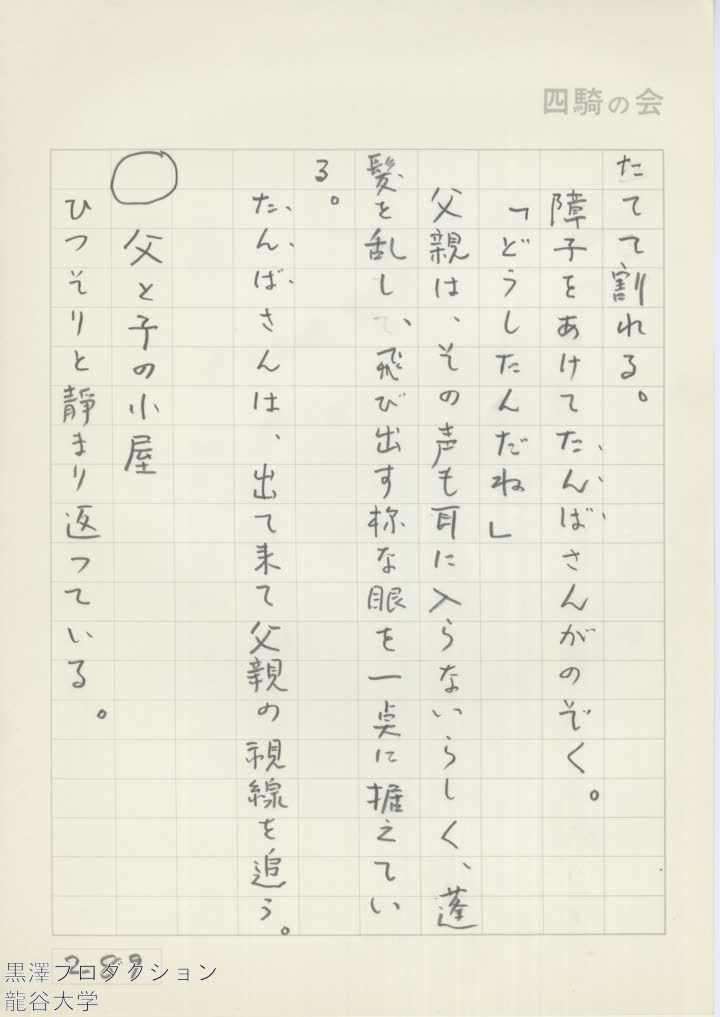 四騎の会
たてて割れる。
障子をあけてたんばさんがのぞく。
「どうしたんだね」
父親は、その声も耳に入らないらしく、蓬
髪を乱し、飛び出す様な眼を一点に据えてい
る。
たんばさんは、出て来て父親の視線を追う。
○ 父と子の小屋
ひっそりと静まり返っている。
289
黒澤プロダクション
龍谷大学